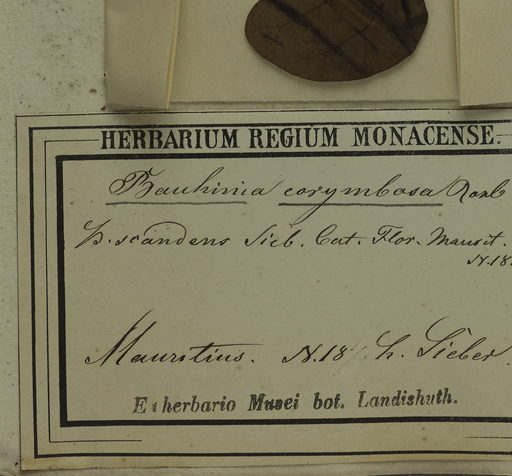 HERBARIUM REGIUM MONACENSE.
Bauhinia corymbosa Roxb
B. scandens Sieb. Cat. Flor. Maurit.
N. 18.
Mauritius. N. 18 h. Sieber.
E herbario Musei bot. Landishuth.